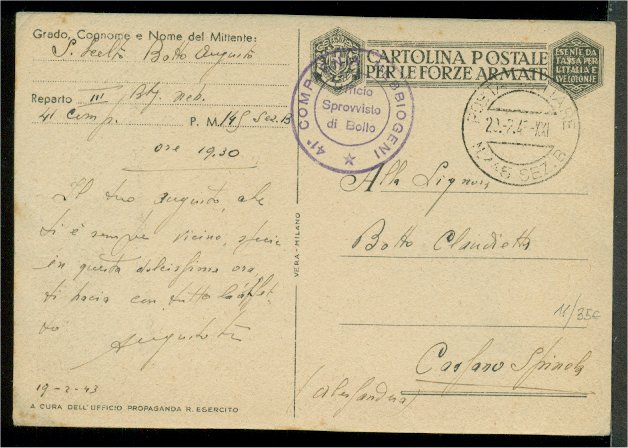 Grado, Cognome e Nome del Mittente:
S. Scelto Botto Augusto
Reparto III Btg. Neb.
41 Comp. P. M. 145 Sez. B
ore 19.30
Il tuo Augusto, che
ti è sempre vicino, specie
in questa dolcissima ora,
ti bacia con tutto l'affet-
to
19-2-43
A CURA DELL'UFFICIO PROPAGANDA R. ESERCITO
VERA - MILANO
CARTOLINA POSTALE
PER LE FORZE ARMATE
ESENTE DA
TASSA PER
L'ITALIA E
LE COLONIE
41ª COMP BBIOGENI
Ufficio
Sprovvisto
di Bollo
POSTA MILITARE
N. SEZ. B
Alla Signora
Botto Claudietta
11/35€
Cassano Spinola
(Alessandria)